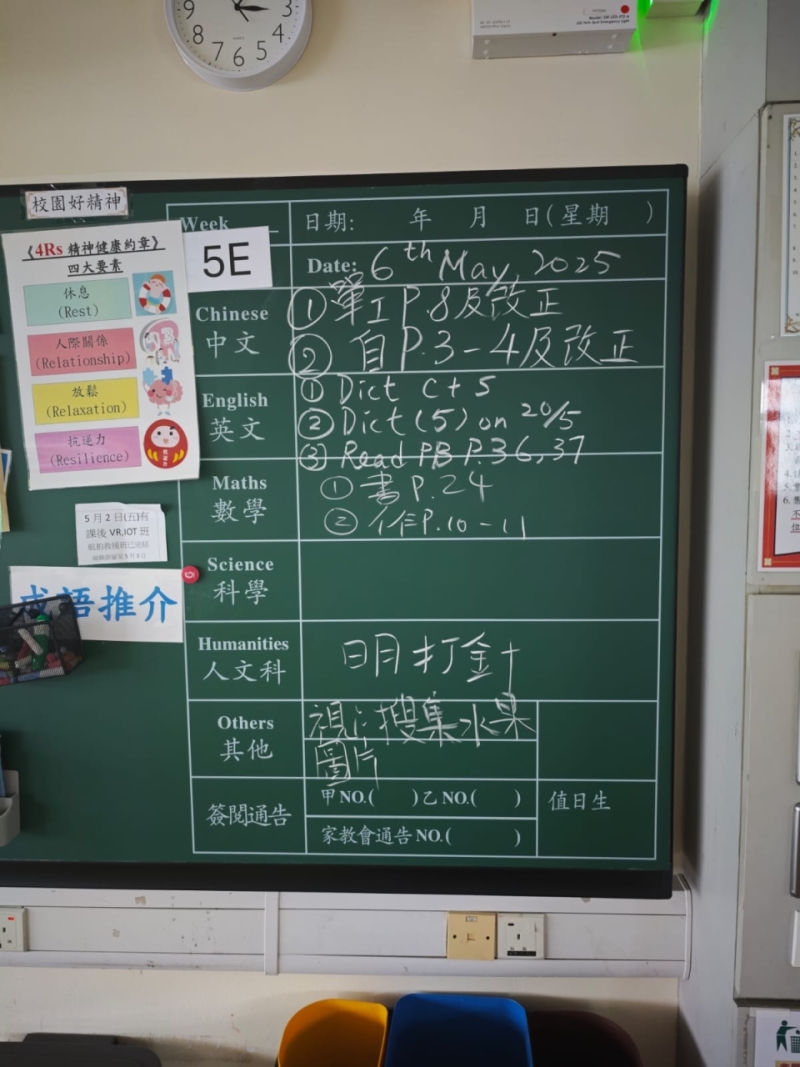 3
4
5
6
7
8
9
校園好精神
《4Rs 精神健康約章》
四大要素
休息
(Rest)
人際關係
(Relationship)
放鬆
(Relaxation)
抗逆力
(Resilience)
5月2日(五)有
課後VR,IOT班
成語推介
Week
5E
日期: 年 月 日(星期 )
Date: 6th May, 2025
Chinese
中文
① 單工P.8及改正
② 自P.3-4及改正
English
英文
① Dict C+S
② Dict (5) on 20/5
③ Read PB P.36,37
Maths
數學
① 書P.24
② 作P.10-11
Science
科學
Humanities
人文科
明打針
Others
其他
視:搜集水果
圖片
簽閱通告
甲NO.( )乙NO.( )
家教會通告NO.( )
值日生